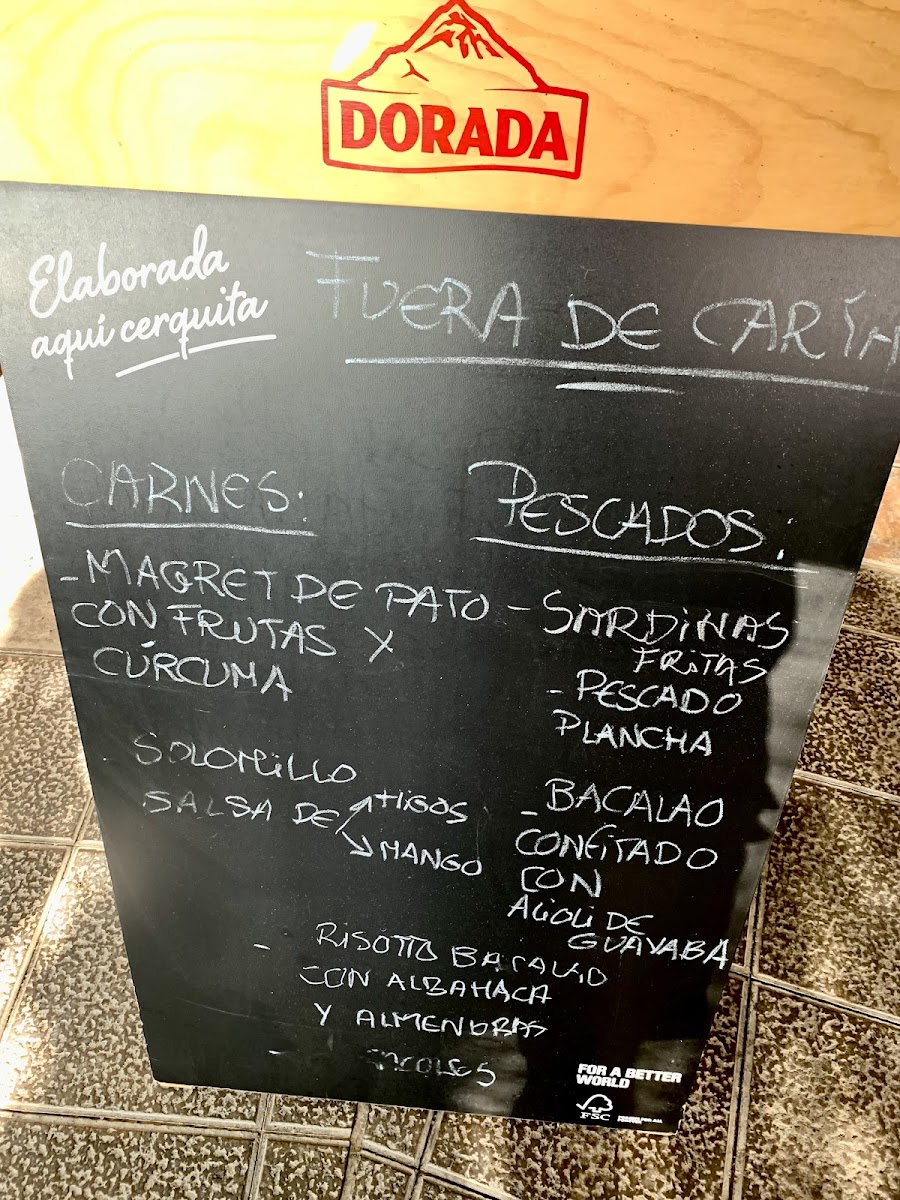 DORADA
Elaborada
aquí cerquita
FUERA DE CARTA
CARNES:
- MAGRET DE PATO
CON FRUTAS Y
CÚRCUMA
SOLOMILLO
SALSA DE HIGOS
MANGO
PESCADOS:
- SARDINAS
FRITAS
- PESCADO
PLANCHA
- BACALAO
CONFITADO
CON
ALIOLI DE
GUAYABA
- RISOTTO BACALAO
CON ALBAHACA
Y ALMENDRAS
-
FOR A BETTER
WORLD
FSC